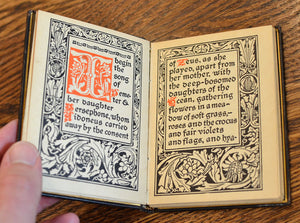 I begin
the
song
of
Deme-
ter &
her daughter
Persephone, whom
Aidoneus carried
away by the consent
of Zeus, as she
played, apart from
her mother, with
the deep-bosomed
daughters of the
Ocean, gathering
flowers in a mea-
dow of soft grass,-
roses and the crocus
and fair violets
and flags, and hya-